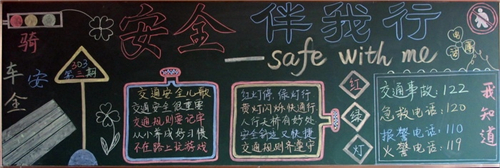 安全 伴我行
safe with me
骑车安全
303
第三期
交通安全儿歌
交通安全很重要
交通规则要记牢
从小养成好习惯
不在路上玩游戏
红灯停，绿灯行
黄灯闪烁快通行
人行天桥有好处
安全舒适又快捷
交通规则齐遵守
红
绿
灯
交通事故：122
急救电话：120
报警电话：110
火警电话：119
我知道